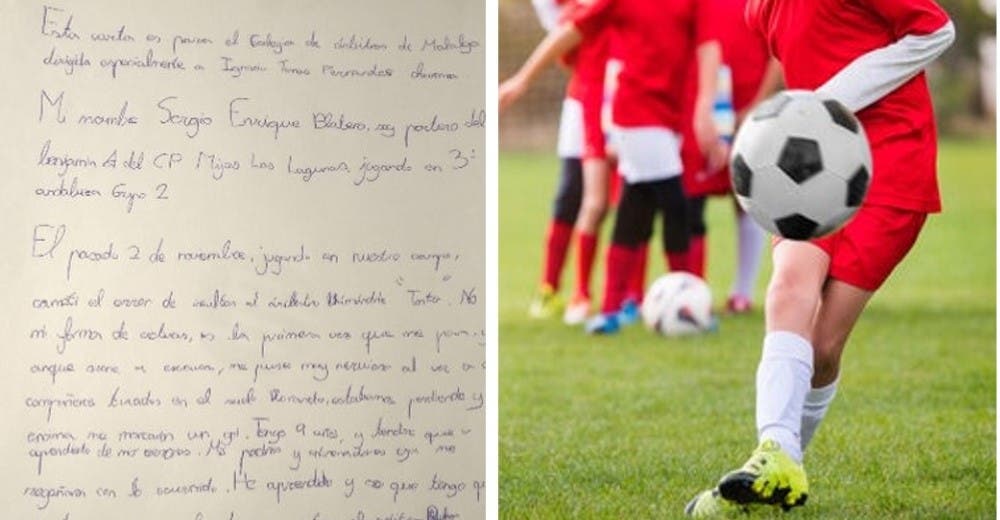 Esta carta es para el Colegio de árbitros de Malaga
dirigida especialmente a Ignacio Tomas Fernandes
Mi nombre Sergio Enrique Blatero, soy portero del
benjamin A del CP Mijas Las Lagunas, jugando en 3ª
andaluza Grupo 2
El pasado 2 de noviembre, jugando en nuestro campo,
cometi el error de insultar al árbitro "Tonto". No
mi forma de actuar, es la primera vez que me pasa, y
anque sirve me puse muy nervioso al ver a
compañeros tirados en el suelo llorando, estabamos perdiendo y
encima me marcaron un gol. Tengo 9 años, y tendre que ir
aprendiendo de mis errores. Mis padres y entrenadores me
regañaron con lo ocurrido. He aprendido y se que tengo q